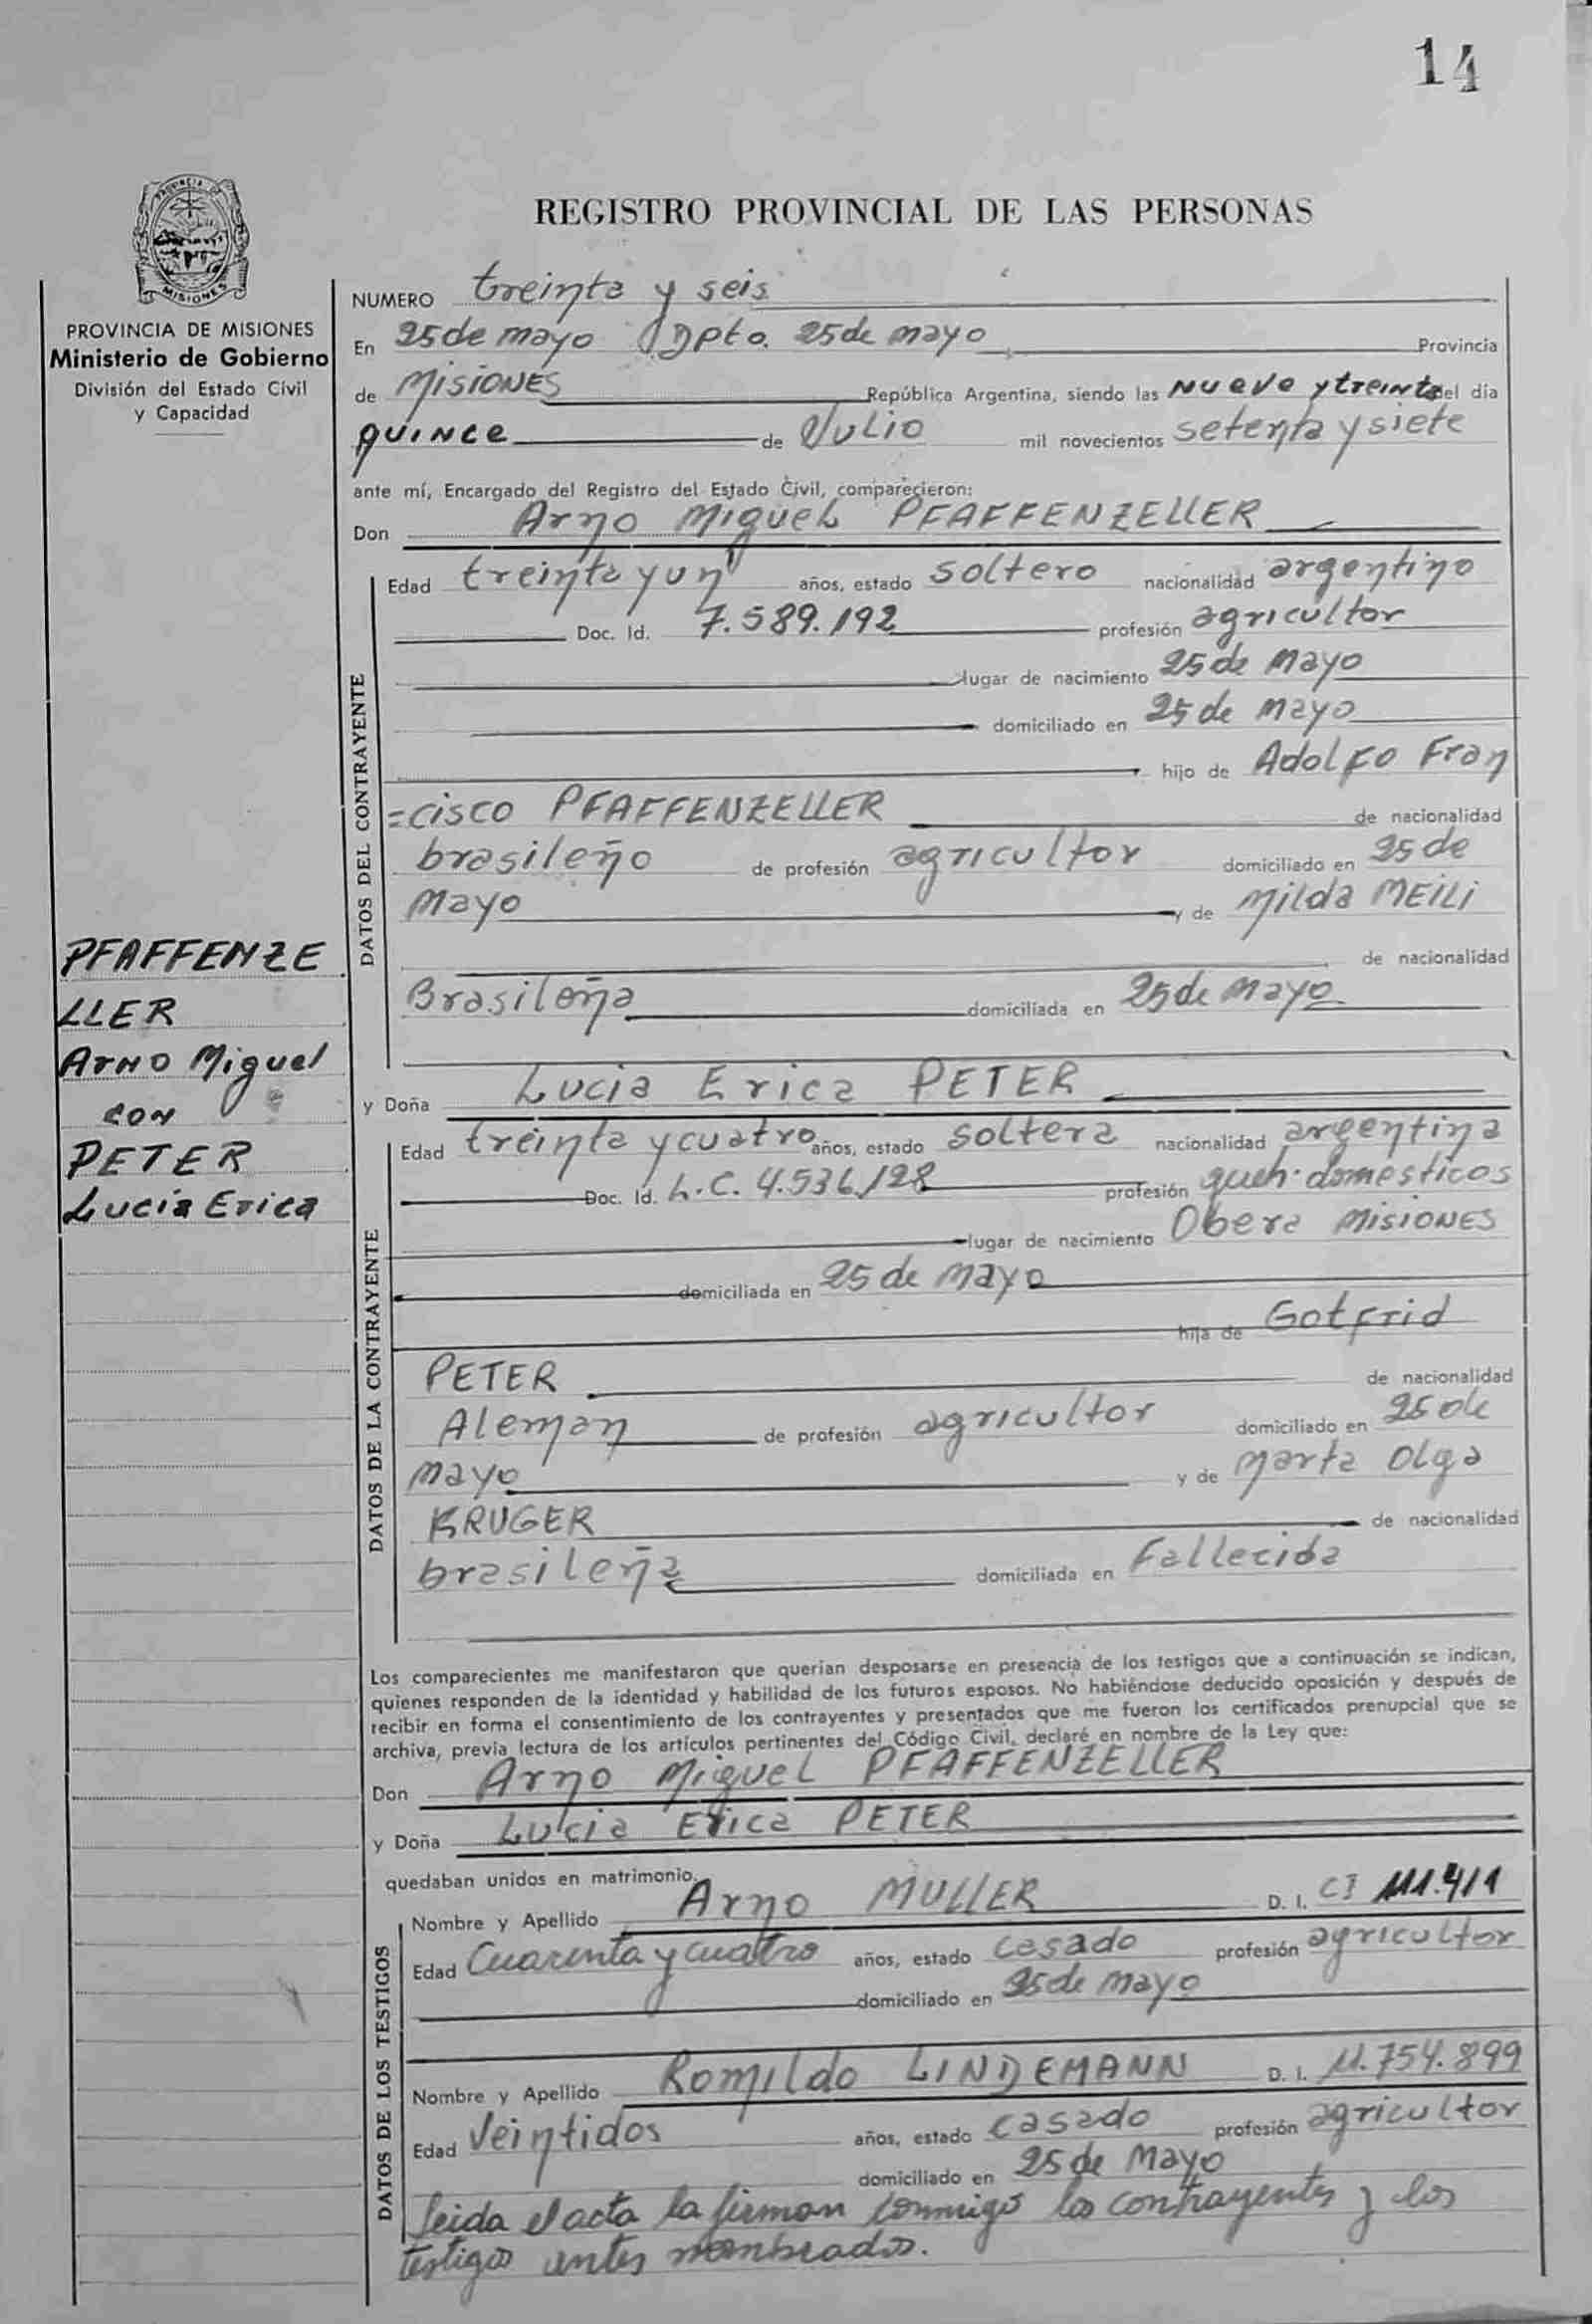 14
PROVINCIA DE
MISIONES
REGISTRO PROVINCIAL DE LAS PERSONAS
PROVINCIA DE MISIONES
Ministerio de Gobierno
División del Estado Civil
y Capacidad
NUMERO treinta y seis
En 25 de mayo Dpto. 25 de mayo Provincia
de MISIONES República Argentina, siendo las Nueve y treinta del día
quince de Julio mil novecientos setenta y siete
ante mí, Encargado del Registro del Estado Civil, comparecieron:
Don Arno Miguel PFAFFENZELLER
DATOS DEL CONTRAYENTE
Edad treinta y un años, estado soltero nacionalidad argentino
Doc. Id. 7.589.192 profesión agricultor
lugar de nacimiento 25 de Mayo
domiciliado en 25 de Mayo
hijo de Adolfo Fran
=cisco PFAFFENZELLER de nacionalidad
brasileño de profesión agricultor domiciliado en 25 de
Mayo y de Milda MEILI
de nacionalidad
Brasileña domiciliada en 25 de Mayo
PFAFFENZE
LLER
Arno Miguel
con
PETER
Lucía Erica
y Doña Lucia Erica PETER
DATOS DE LA CONTRAYENTE
Edad treinta y cuatro años, estado soltera nacionalidad argentina
Doc. Id. L.C. 4.536.128 profesión queh. domesticos
lugar de nacimiento Obera MISIONES
domiciliada en 25 de Mayo
hija de Gotfrid
PETER de nacionalidad
Aleman de profesión agricultor domiciliado en 25 de
Mayo y de Marta Olga
KRUGER de nacionalidad
brasileña domiciliada en Fallecida
Los comparecientes me manifestaron que querían desposarse en presencia de los testigos que a continuación se indican,
quienes responden de la identidad y habilidad de los futuros esposos. No habiéndose deducido oposición y después de
recibir en forma el consentimiento de los contrayentes y presentados que me fueron los certificados prenupcial que se
archiva, previa lectura de los artículos pertinentes del Código Civil, declaré en nombre de la Ley que:
Don Arno Miguel PFAFFENZELLER
y Doña Lucia Erica PETER
quedaban unidos en matrimonio.
DATOS DE LOS TESTIGOS
Nombre y Apellido Arno MULLER D. I. CI 111.411
Edad Cuarenta y cuatro años, estado casado profesión agricultor
domiciliado en 25 de Mayo
Nombre y Apellido Romildo LINDEMANN D. I. 11.754.899
Edad Veintidos años, estado casado profesión agricultor
domiciliado en 25 de Mayo
Leida el acta la firman conmigo los contrayentes y los
testigos antes nombrados.